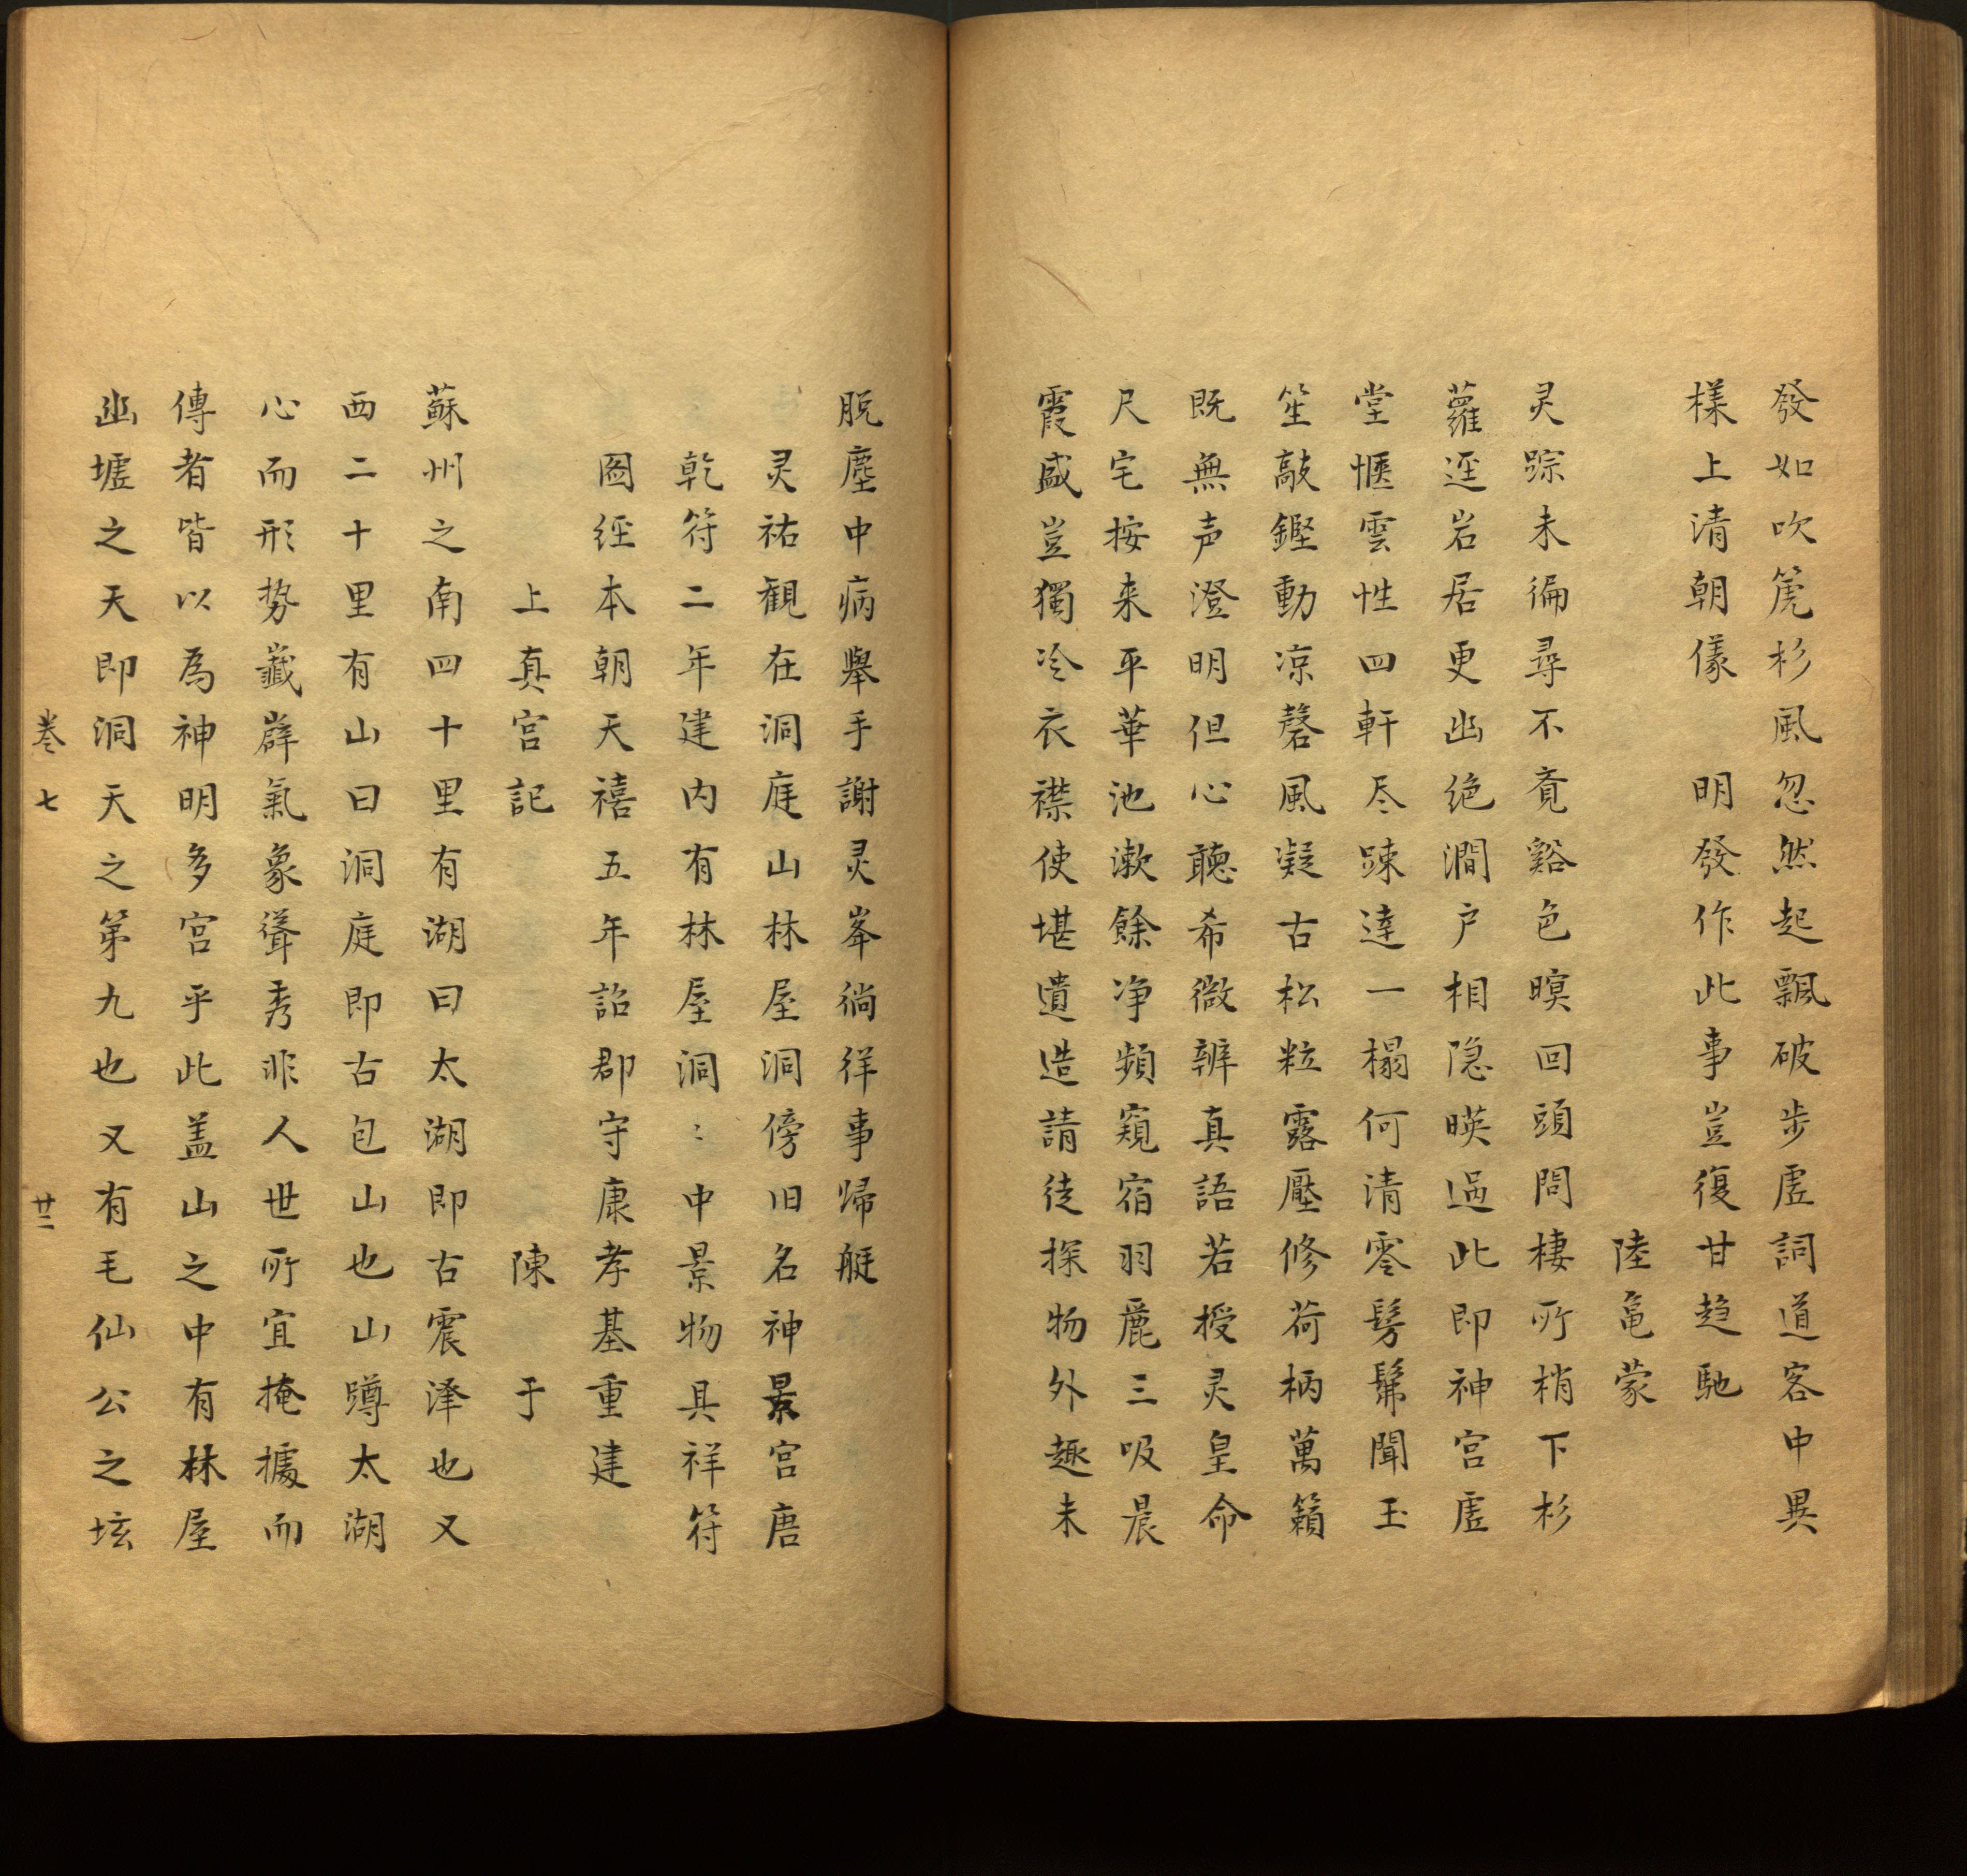 發如吹箎杉風忽然起飄破步虛詞道客中異
樣上清朝儀　明發作此事豈復甘趋馳
陸龜蒙
灵踪未徧尋不覔谿色暝回頭問棲所梢下杉
蘿逕岩居更幽绝澗户相隐暎過此即神宫虛
堂愜雲性四軒尽踈達一榻何清零髣髴聞玉
笙敲鏗動凉磬風凝古松粒露壓修荷柄萬籟
既無声澄明但心聽希微辨真語若授灵皇命
尺宅按来平華池漱餘净頻窺宿羽麗三吸晨
霞盛豈獨冷衣襟使堪遣造請徒探物外趣未
脱塵中病舉手謝灵峯徜徉事歸艇
灵祐観在洞庭山林屋洞傍旧名神景宫唐
乾符二年建内有林屋洞:中景物具祥符
圖经本朝天禧五年詔郡守康孝基重建
上真宫記
陳于
蘇州之南四十里有湖曰太湖即古震泽也又
西二十里有山曰洞庭即古包山也山蹲太湖
心而形势巀嶭氣象聳秀非人世所宜掩據而
傳者皆以為神明多宫乎此盖山之中有林屋
幽墟之天即洞天之第九也又有毛仙公之坛
卷七
廿二